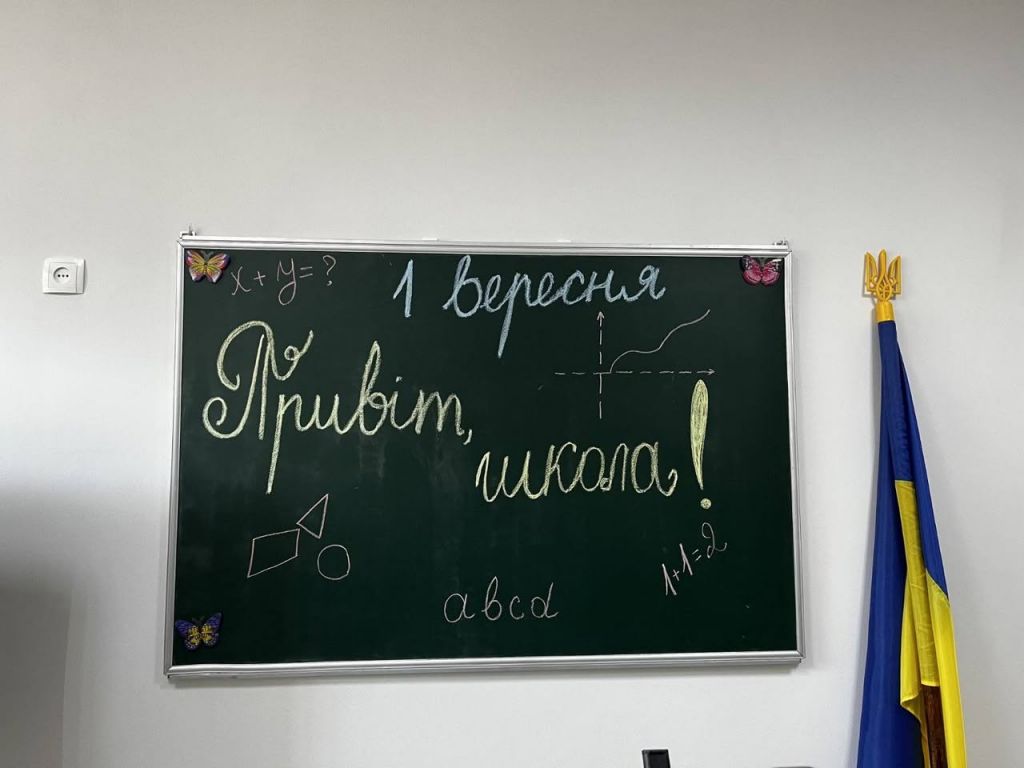 x + y = ?
1 вересня
Привіт,
школа!
1+1=2
abcd